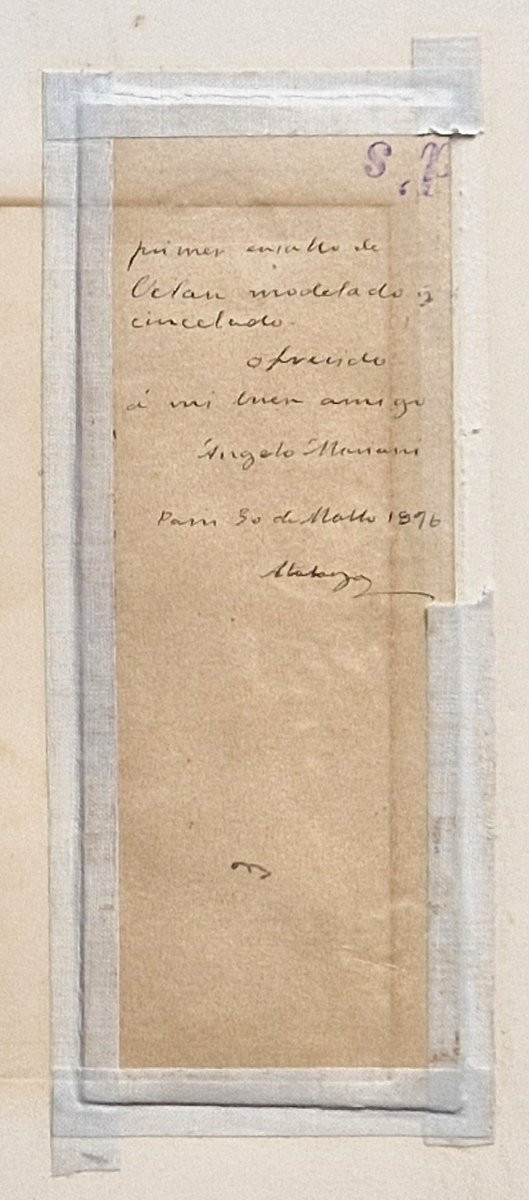 S.P
primer ensallo de
Velan modelado y
cincelado.
ofrecido
á mi buen amigo
Ángelo Mariani
Paris 30 de Mallo 1896